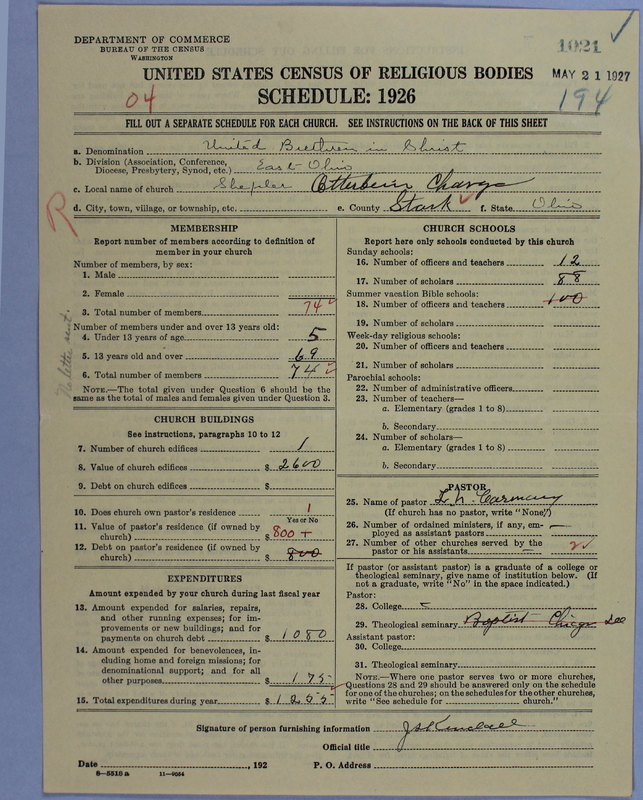 DEPARTMENT OF COMMERCE
BUREAU OF THE CENSUS
WASHINGTON
1021
UNITED STATES CENSUS OF RELIGIOUS BODIES
MAY 21 1927
04
SCHEDULE: 1926
194
FILL OUT A SEPARATE SCHEDULE FOR EACH CHURCH. SEE INSTRUCTIONS ON THE BACK OF THIS SHEET
a. Denomination United Brethren in Christ
b. Division (Association, Conference, Diocese, Presbytery, Synod, etc.) East Ohio
c. Local name of church Shepler Otterbein Charge
d. City, town, village, or township, etc. e. County Stark f. State Ohio
R
No letter sent.
MEMBERSHIP
Report number of members according to definition of
member in your church
Number of members, by sex:
1. Male
2. Female
3. Total number of members 74
Number of members under and over 13 years old:
4. Under 13 years of age 5
5. 13 years old and over 69
6. Total number of members 74
NOTE.—The total given under Question 6 should be
same as the total of males and females given under Question 3.
CHURCH BUILDINGS
See instructions, paragraphs 10 to 12
7. Number of church edifices 1
8. Value of church edifices $ 2600
9. Debt on church edifices $
10. Does church own pastor's residence 1
Yes or No
11. Value of pastor's residence (if owned by
church) $ 800 +
12. Debt on pastor's residence (if owned by
church) $ 800
EXPENDITURES
Amount expended by your church during last fiscal year
13. Amount expended for salaries, repairs,
and other running expenses; for im-
provements or new buildings; and for
payments on church debt $ 1080
14. Amount expended for benevolences, in-
cluding home and foreign missions; for
denominational support; and for all
other purposes $ 175
15. Total expenditures during year $ 1255
CHURCH SCHOOLS
Report here only schools conducted by this church
Sunday schools:
16. Number of officers and teachers 12
17. Number of scholars 88
Summer vacation Bible schools:
18. Number of officers and teachers 100
19. Number of scholars
Week-day religious schools:
20. Number of officers and teachers
21. Number of scholars
Parochial schools:
22. Number of administrative officers
23. Number of teachers—
a. Elementary (grades 1 to 8)
b. Secondary
24. Number of scholars—
a. Elementary (grades 1 to 8)
b. Secondary
PASTOR
25. Name of pastor
(If church has no pastor, write "None")
26. Number of ordained ministers, if any, em-
ployed as assistant pastors —
27. Number of other churches served by the
pastor or his assistants — 2
If pastor (or assistant pastor) is a graduate of a college or
theological seminary, give name of institution below. (If
not a graduate, write "No" in the space indicated.)
Pastor:
28. College
29. Theological seminary Baptist Chicago
Assistant pastor:
30. College
31. Theological seminary
NOTE.—Where one pastor serves two or more churches,
Questions 28 and 29 should be answered only on the schedule
for one of the churches; on the schedules for the other churches,
write "See schedule for church."
Signature of person furnishing information J S Kendall
Official title
Date , 192 P. O. Address
8—5510 a 11—9034